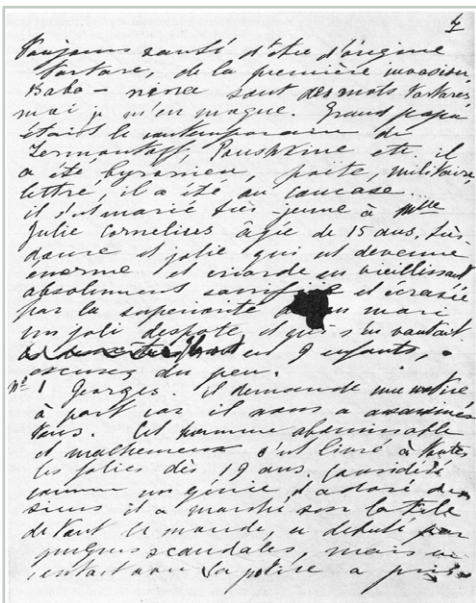 4
toujours vanté d'être d'origine
tartare, de la première invasion
Baba - nina sont des mots tartares
moi je m'en moque. Grand papa
était le contemporain de
Lermontoff, Poushkine etc. il
a été byronien, poète, militaire
lettré, il a été au caucase
il s'est marié très jeune à Mlle
Julie Cornelius agée de 15 ans, très
douce et jolie qui est devenue
énorme et criarde en vieillissant
absolument et écrasée
par la superiorité mari
un joli despote et qui s'en vantait
en 9 enfants,
excusez du peu.
N° 1 Georges. il demande une notice
à part car il nous a
tous. Cet homme abominable
et malheureux s'est livré à toutes
les folies dès 19 ans. Considéré
comme un génie, adoré des
siens il a marché sur la tête
devant le monde, a debuté par
quelques scandales, mais
la police a